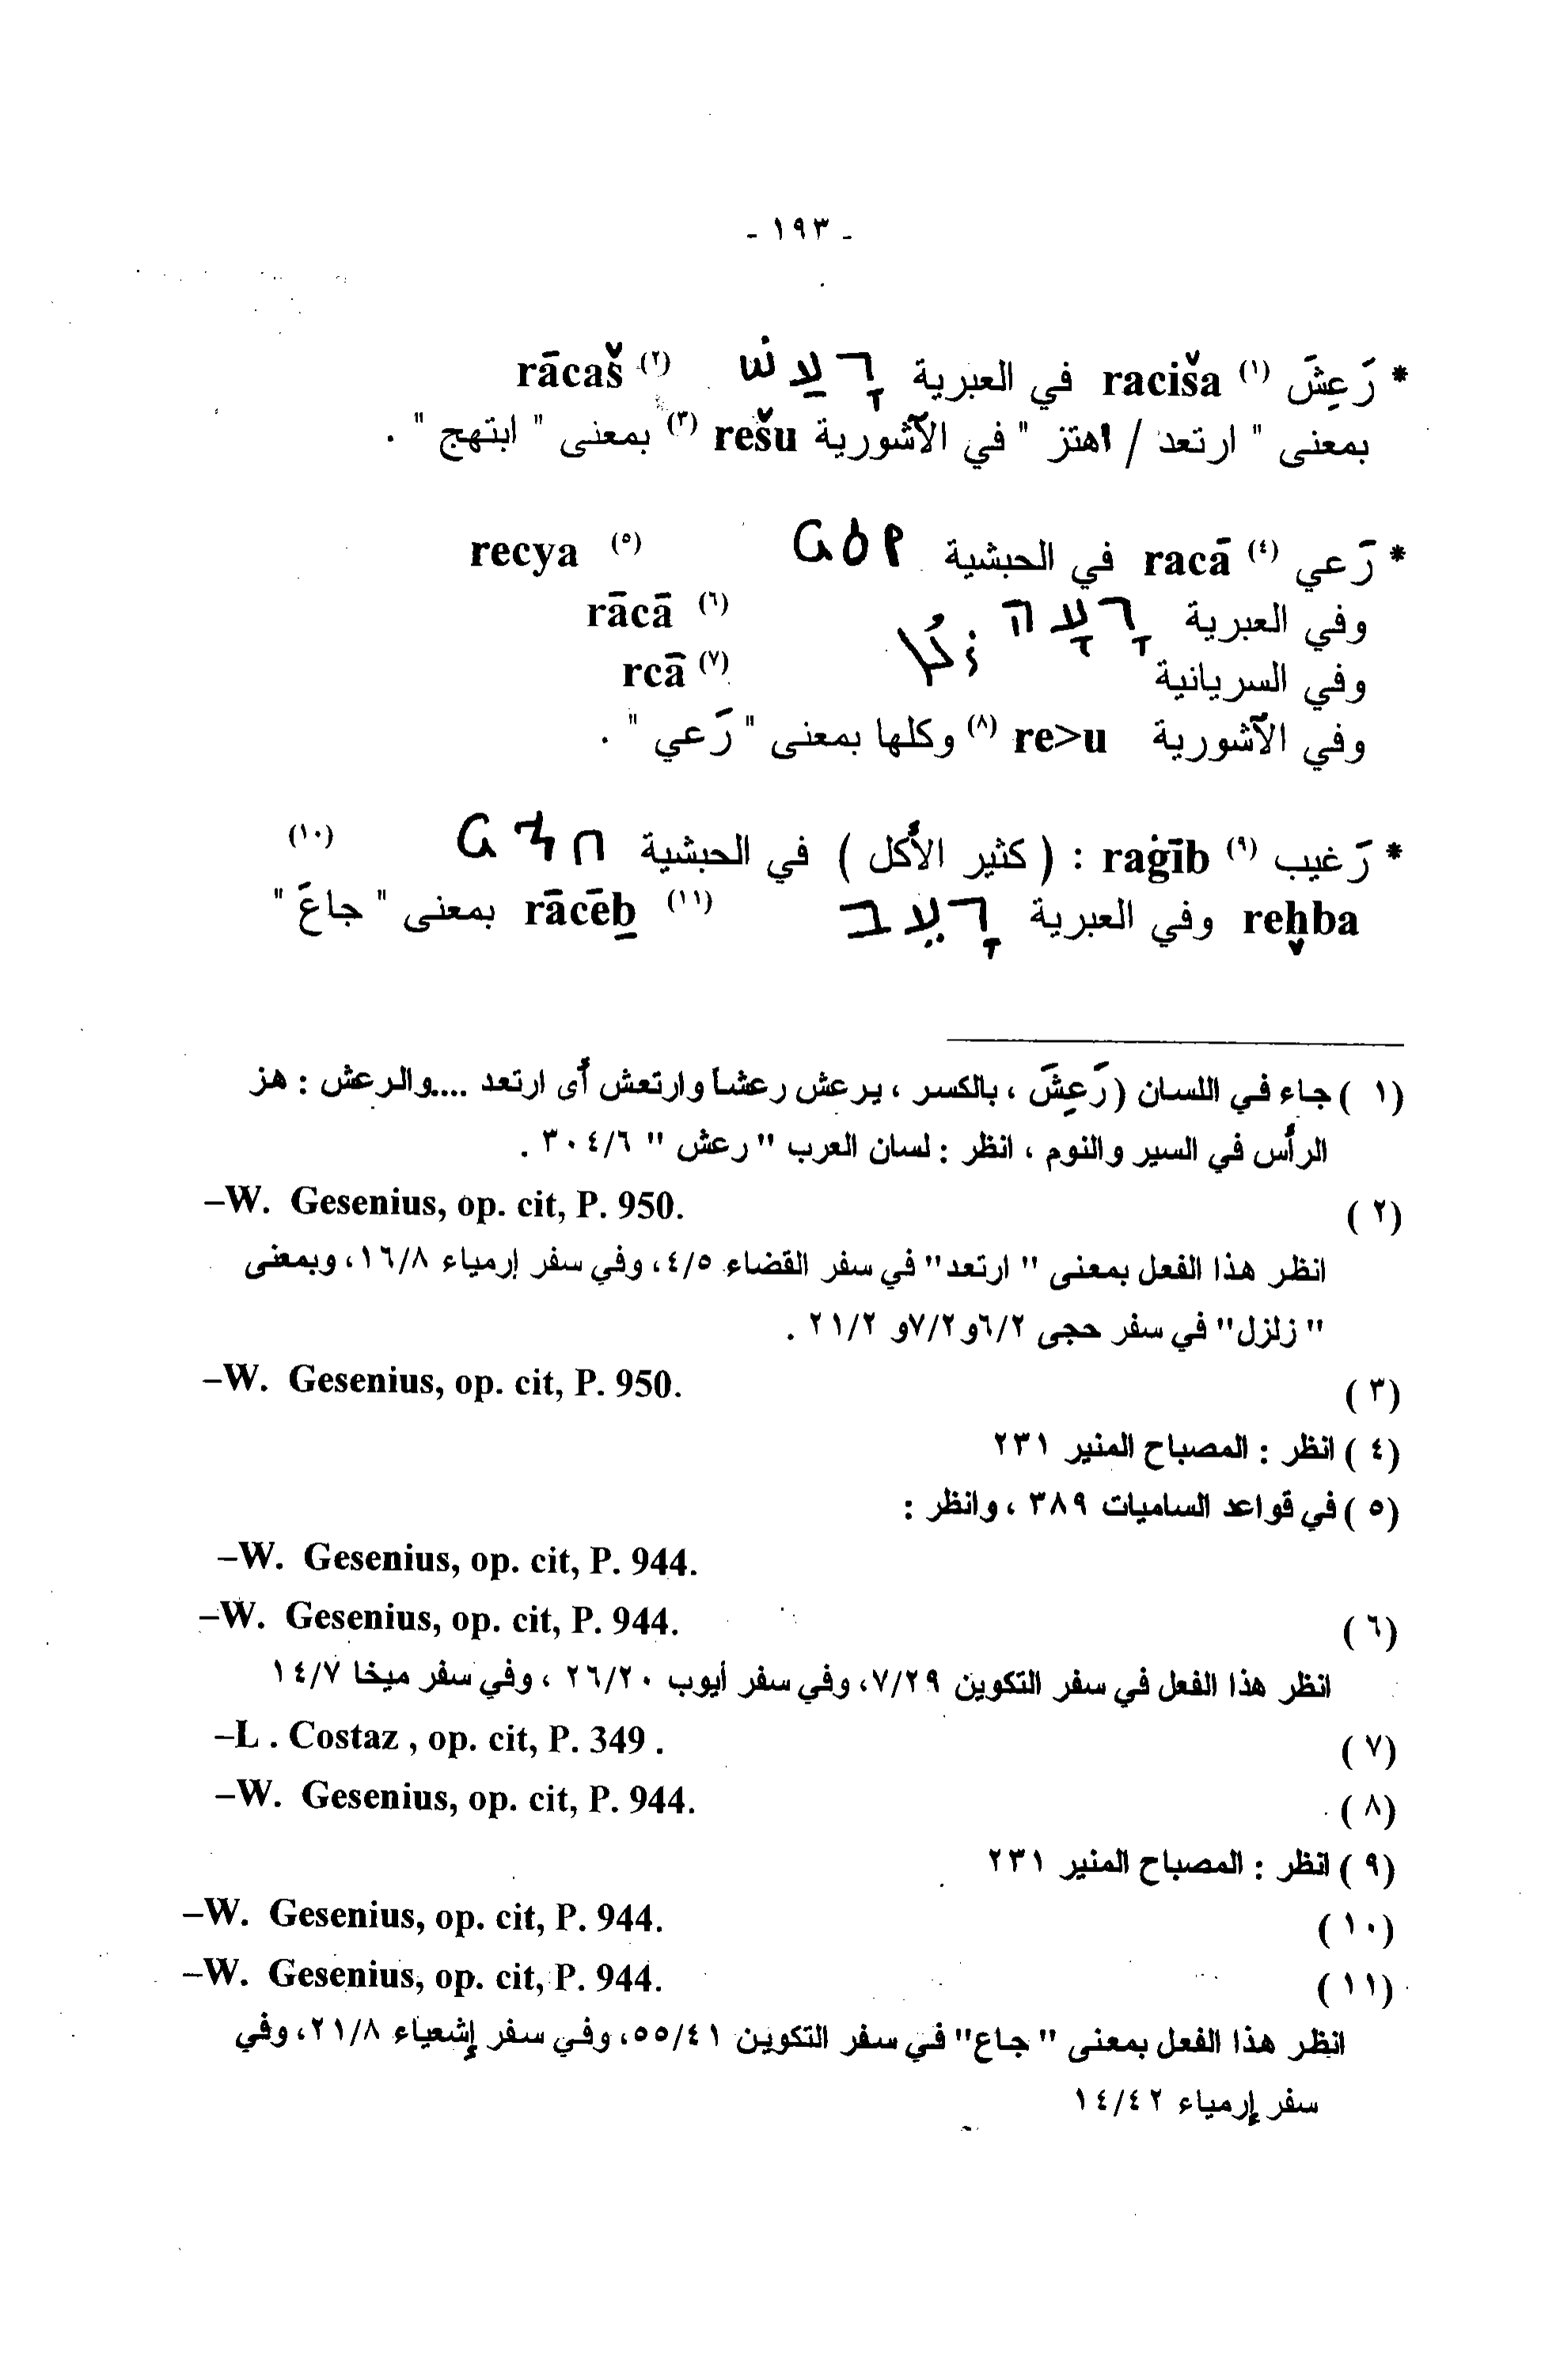 - ١٩٣ -
* رَعِشَ (١) raciša في العبرية רָעַשׁ (٢) rācaš
بمعنى " ارتعد / اهتز " في الآشورية rešu (٣) بمعنى " ابتهج " .
* رَعي (٤) racā في الحبشية ረዕየ (٥) recya
وفي العبرية רָעָה (٦) rācā
وفي السريانية (٧) rcā
وفي الآشورية re>u (٨) وكلها بمعنى " رَعي " .
* رَغيب (٩) raġīb : ( كثير الأكل ) في الحبشية (١٠)
reḫba وفي العبرية רָעֵב (١١) rācēḇ بمعنى " جاعَ "
(١ ) جاء في اللسان (رَعِشَ ، بالكسر ، يرعش رعشا وارتعش أى ارتعد ....والرعش : هز
الرأس في السير والنوم ، انظر : لسان العرب " رعش " ٣٠٤/٦ .
(٢ ) –W. Gesenius, op. cit, P. 950.
انظر هذا الفعل بمعنى " ارتعد" في سفر القضاء ٤/٥، وفي سفر إرمياء ١٦/٨، وبمعنى
" زلزل" في سفر حجى ٦/٢و٧/٢و ٢١/٢ .
(٣ ) –W. Gesenius, op. cit, P. 950.
(٤ ) انظر : المصباح المنير ٢٣١
(٥ ) في قواعد الساميات ٣٨٩ ، وانظر :
–W. Gesenius, op. cit, P. 944.
(٦ ) –W. Gesenius, op. cit, P. 944.
انظر هذا الفعل في سفر التكوين ٧/٢٩، وفي سفر أيوب ٢٦/٢٠ ، وفي سفر ميخا ١٤/٧
(٧ ) –L . Costaz , op. cit, P. 349 .
(٨ ) –W. Gesenius, op. cit, P. 944.
(٩ ) انظر : المصباح المنير ٢٣١
(١٠ ) –W. Gesenius, op. cit, P. 944.
(١١ ) –W. Gesenius, op. cit, P. 944.
انظر هذا الفعل بمعنى " جاع" في سفر التكوين ٥٥/٤١، وفي سفر إشعياء ٢١/٨، وفي
سفر إرمياء ١٤/٤٢